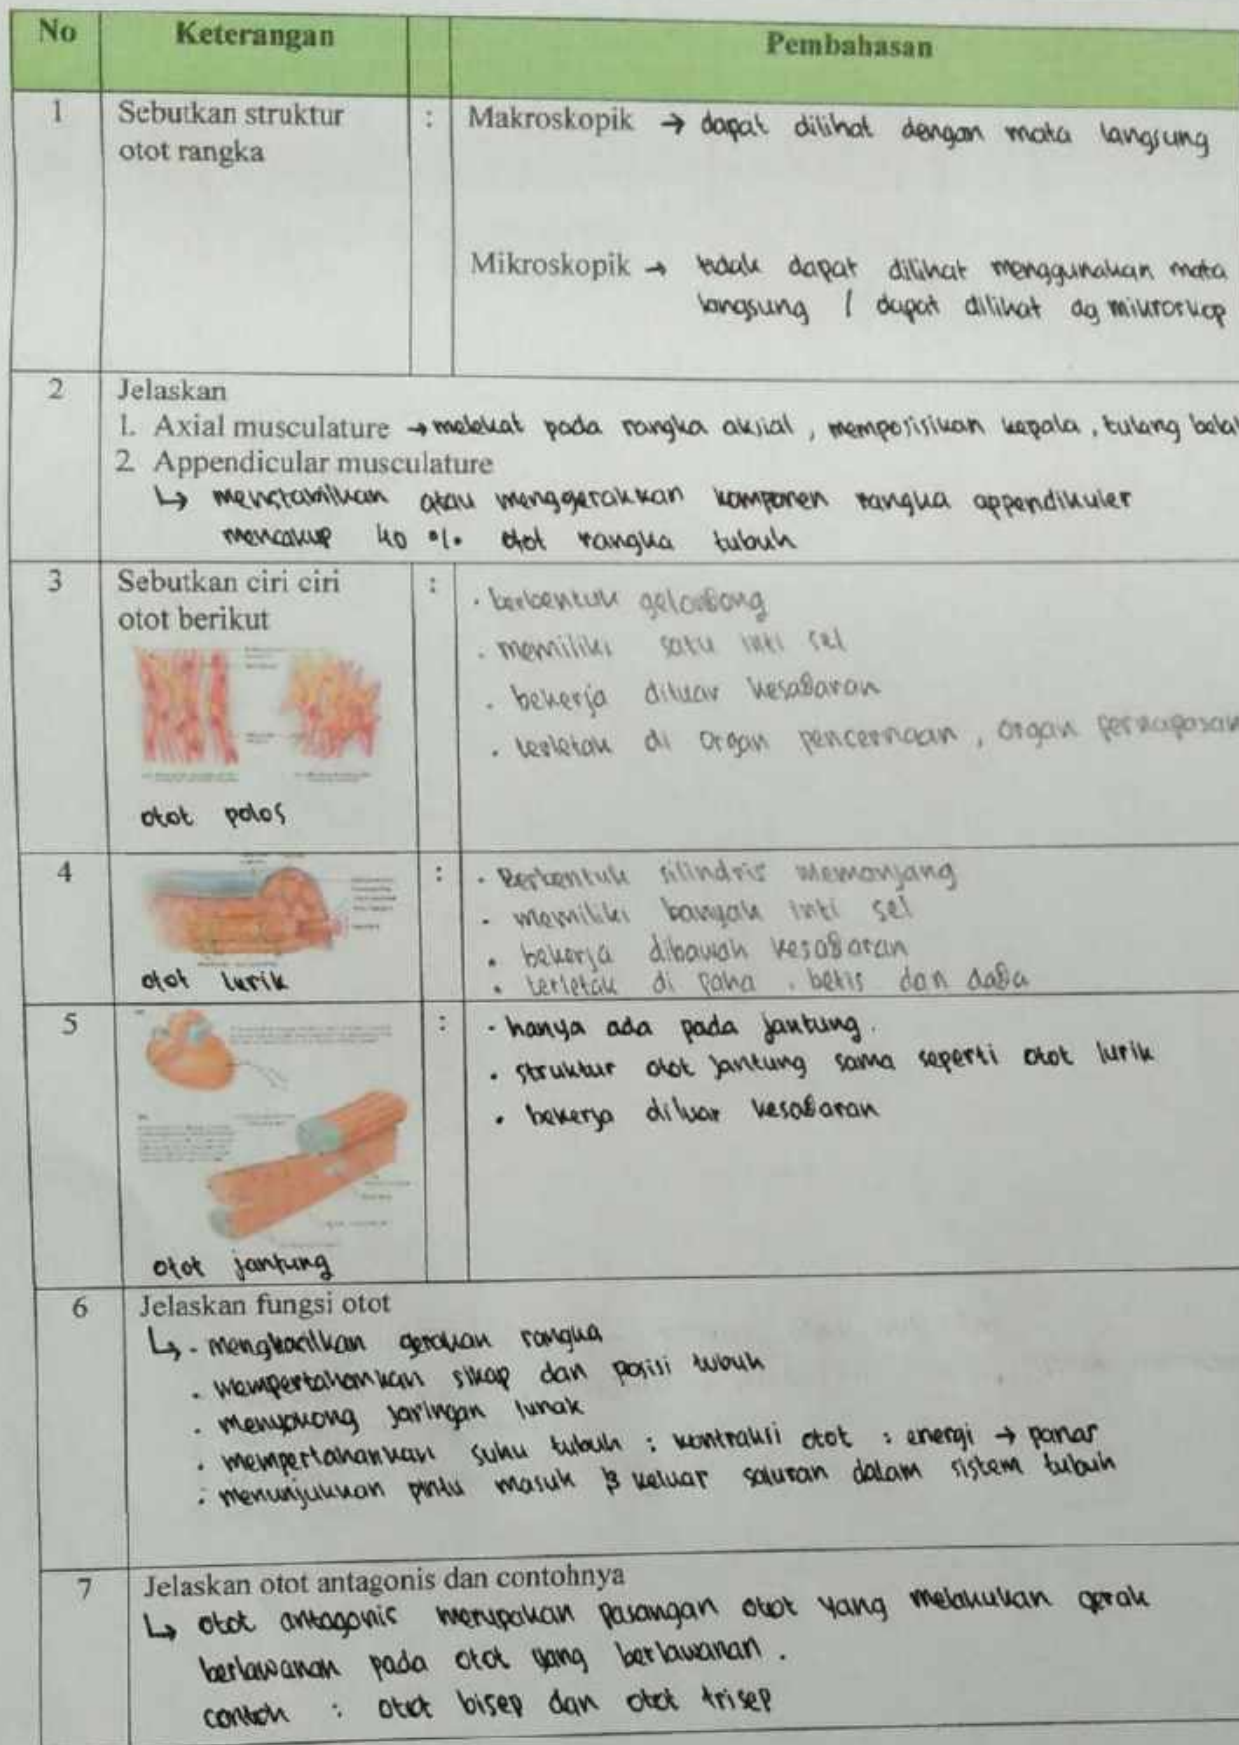 No Keterangan Pembahasan
1 Sebutkan struktur : Makroskopik → dapat dilihat dengan mata langsung
otot rangka
Mikroskopik → tidak dapat dilihat menggunakan mata
langsung / dapat dilihat dg mikroskop
2 Jelaskan
1. Axial musculature → melekat pada rangka aksial, memposisikan kepala, tulang belak
2. Appendicular musculature
↳ menstabilkan atau menggerakkan komponen rangka appendikuler
mencakup 40 % otot rangka tubuh
3 Sebutkan ciri ciri : · berbentuk gelondong
otot berikut
· memiliki satu inti sel
· bekerja diluar kesadaran
· terletak di organ pencernaan, organ pernapasan
otot polos
4 : · Berbentuk silindris memanjang
· memiliki banyak inti sel
· bekerja dibawah kesadaran
· terletak di paha, betis dan dada
otot lurik
5 : · hanya ada pada jantung.
· struktur otot jantung sama seperti otot lurik
· bekerja diluar kesadaran
otot jantung
6 Jelaskan fungsi otot
↳ · menghasilkan gerakan rangka
· mempertahankan sikap dan posisi tubuh
· menyokong jaringan lunak
· mempertahankan suhu tubuh : kontraksi otot : energi → panas
· menunjukkan pintu masuk & keluar saluran dalam sistem tubuh
7 Jelaskan otot antagonis dan contohnya
↳ otot antagonis merupakan pasangan otot yang melakukan gerak
berlawanan pada otot yang berlawanan.
contoh : otot bisep dan otot trisep